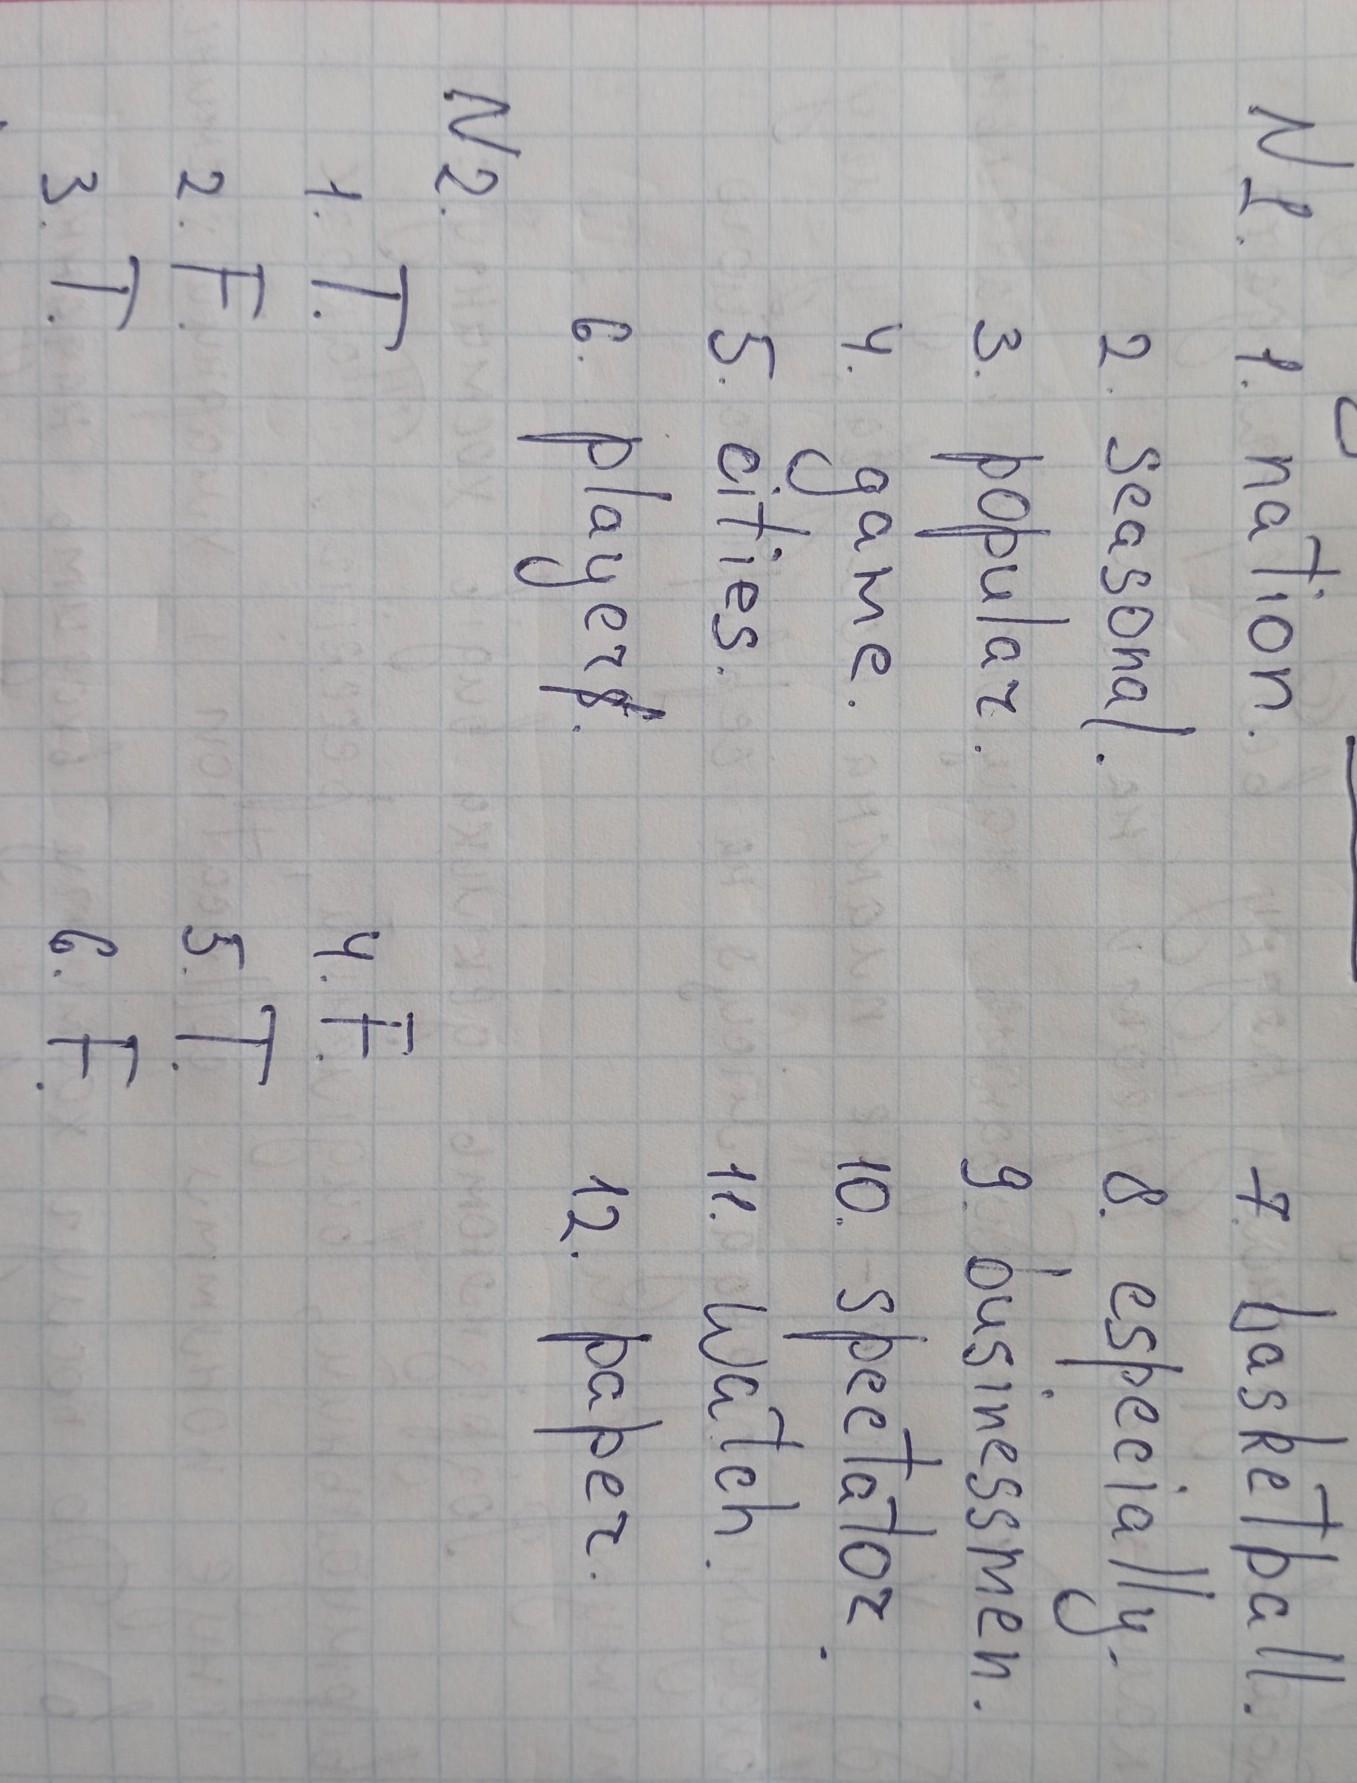 N1. 1. nation. 7. basketball.
2. seasonal. 8. especially.
3. popular. 9. businessmen.
4. game. 10. spectator.
5. cities. 11. watch.
6. players. 12. paper.
N2.
1. T. 4. F.
2. F. 5. T.
3. T. 6. F.